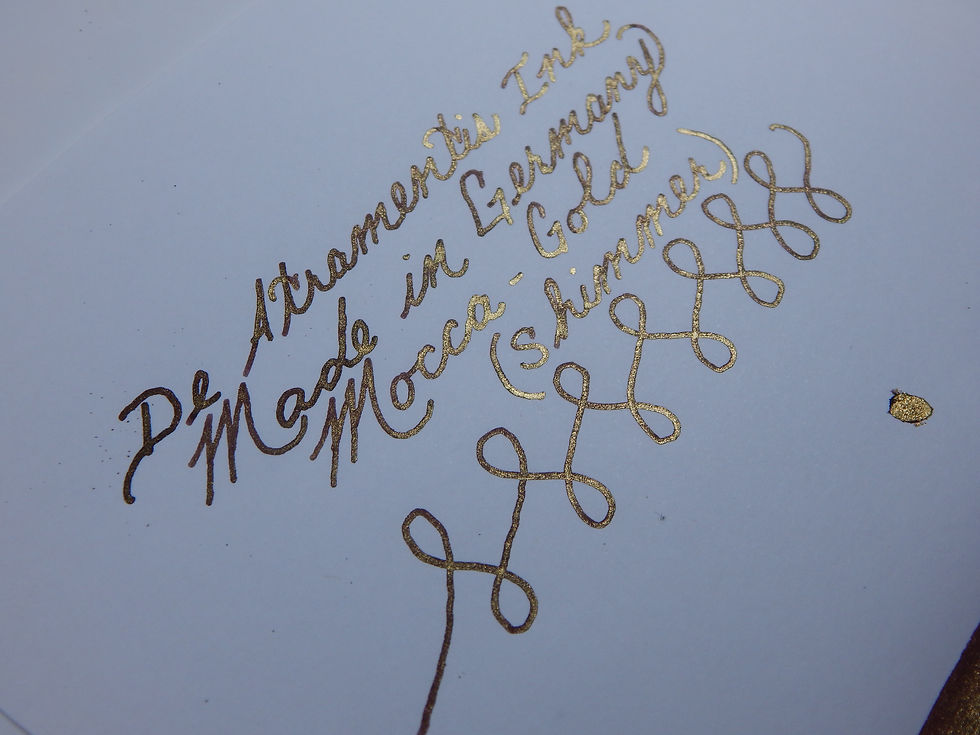 De Atramentis Ink
Made in Germany
Mocca-Gold
(Shimmer)